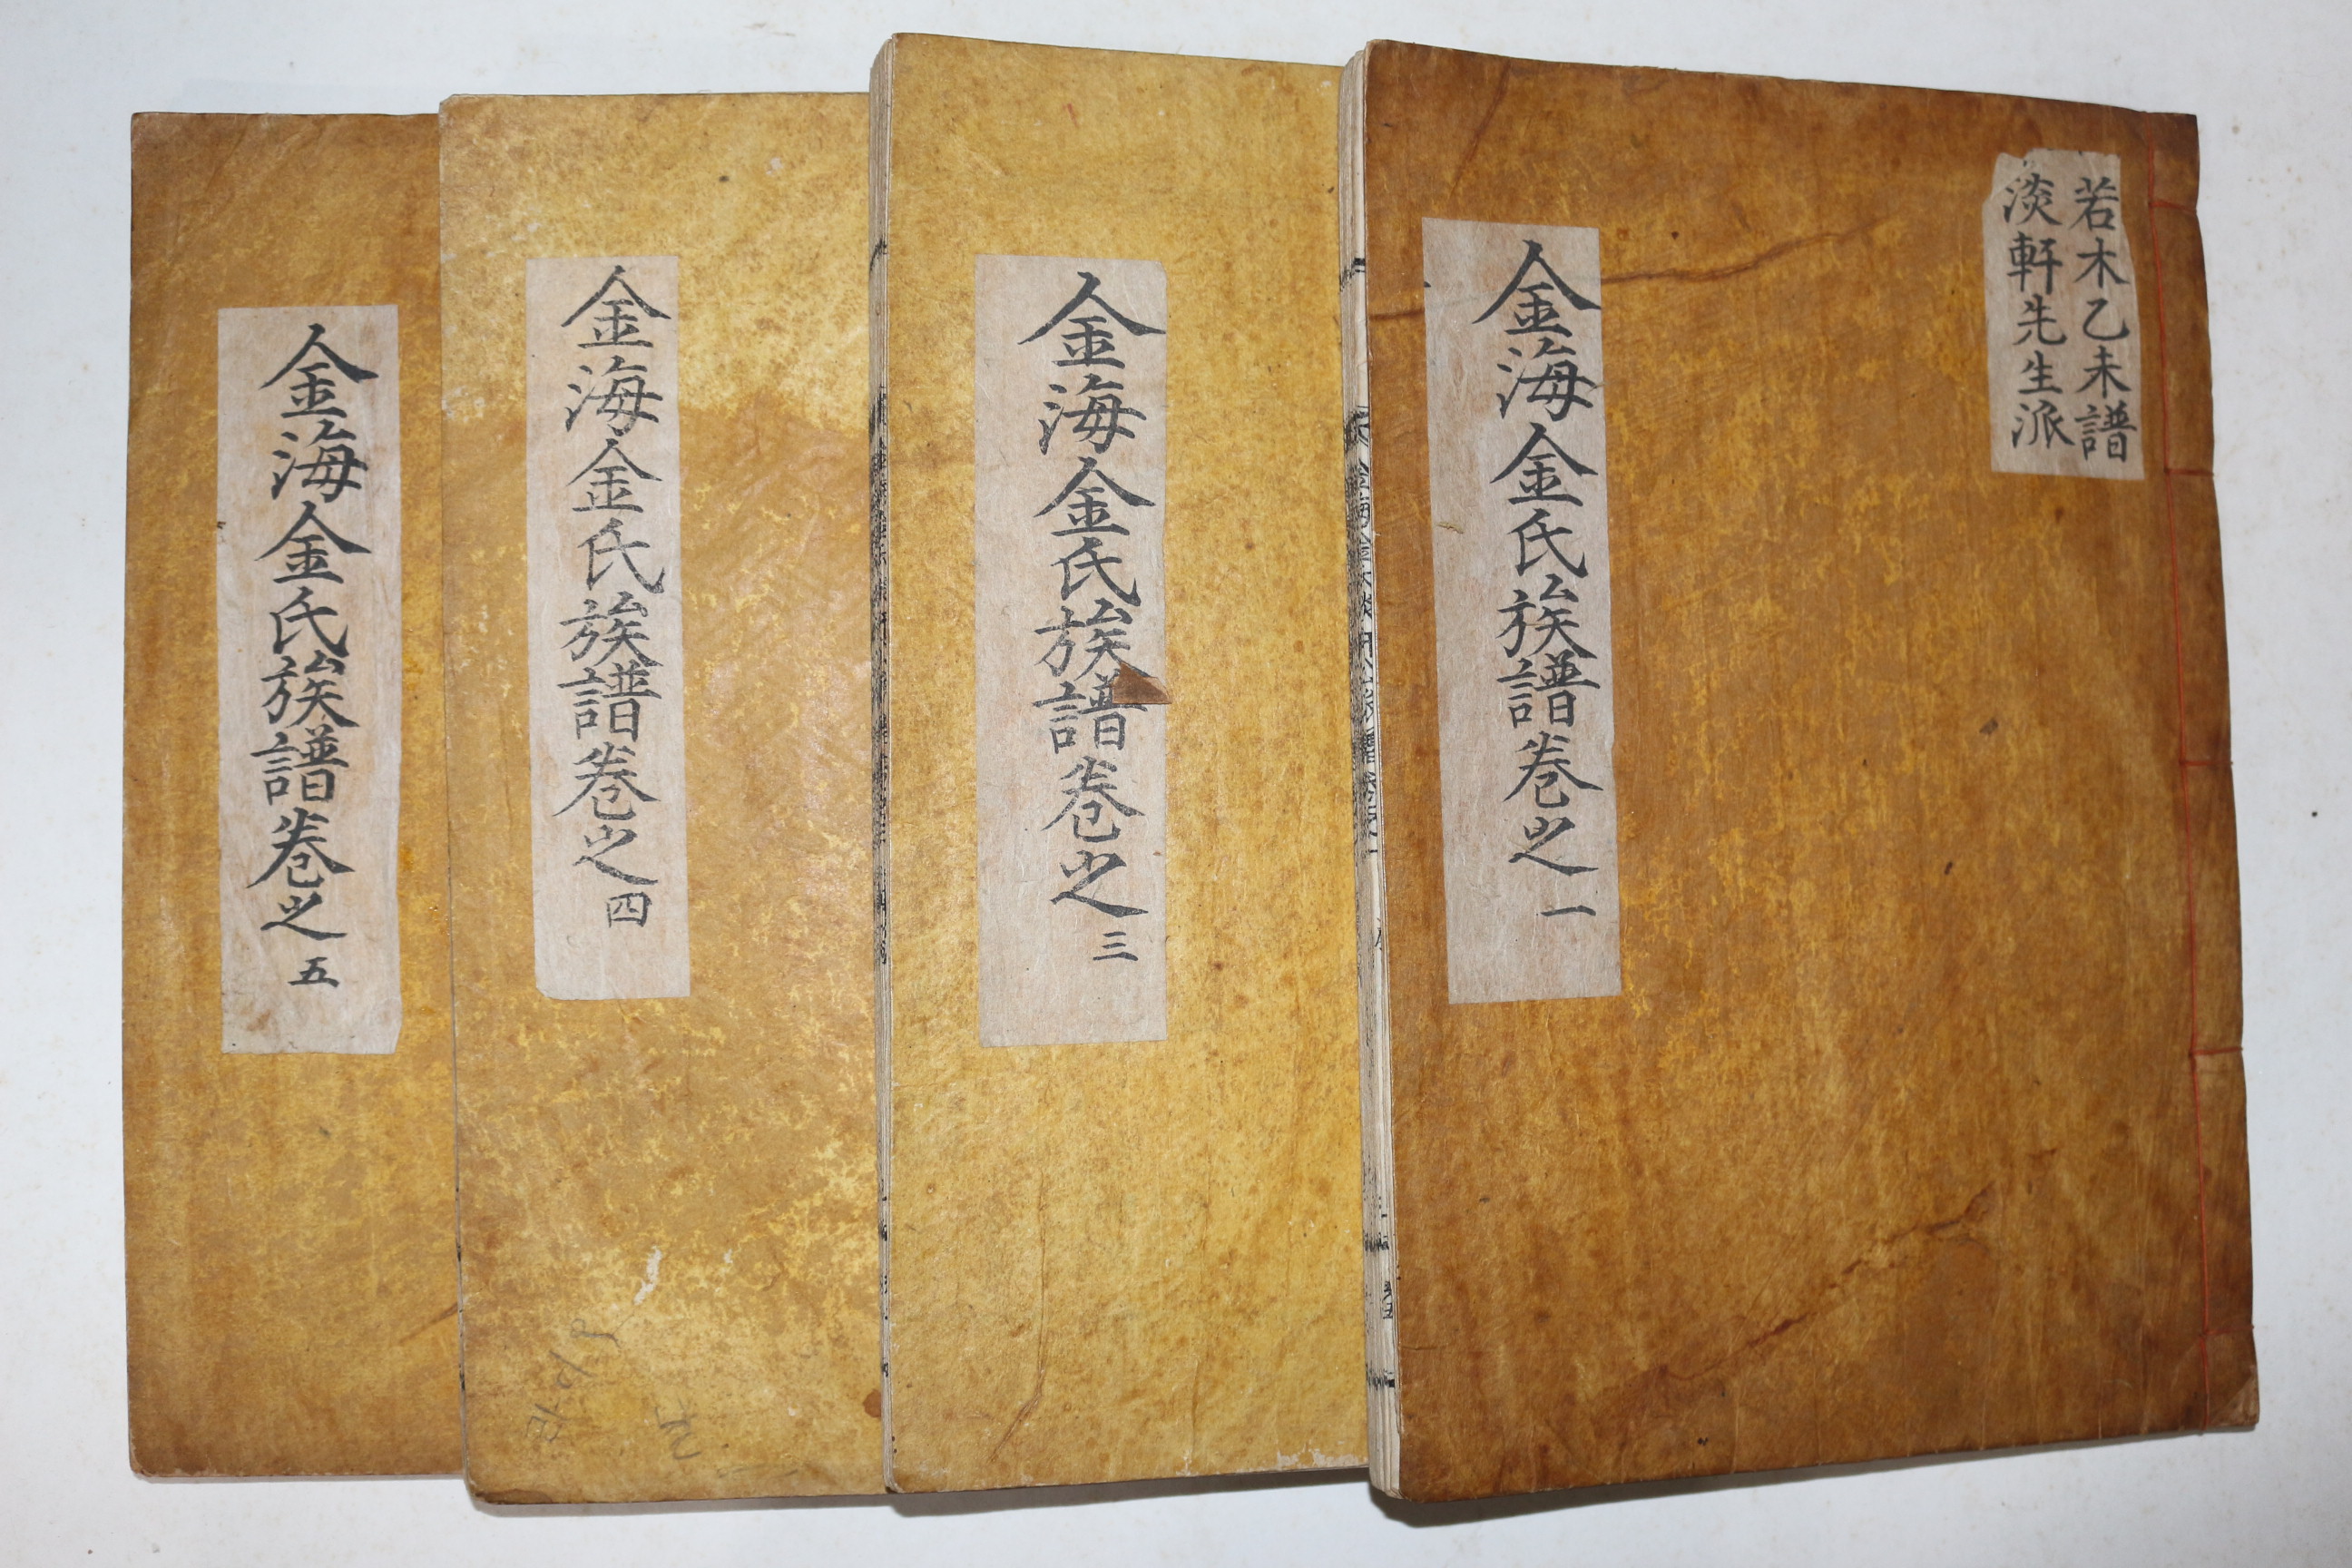 若木乙未譜
淡軒先生派
金海金氏族譜卷之一
金海金氏族譜卷之三
金海金氏族譜卷之四
金海金氏族譜卷之五